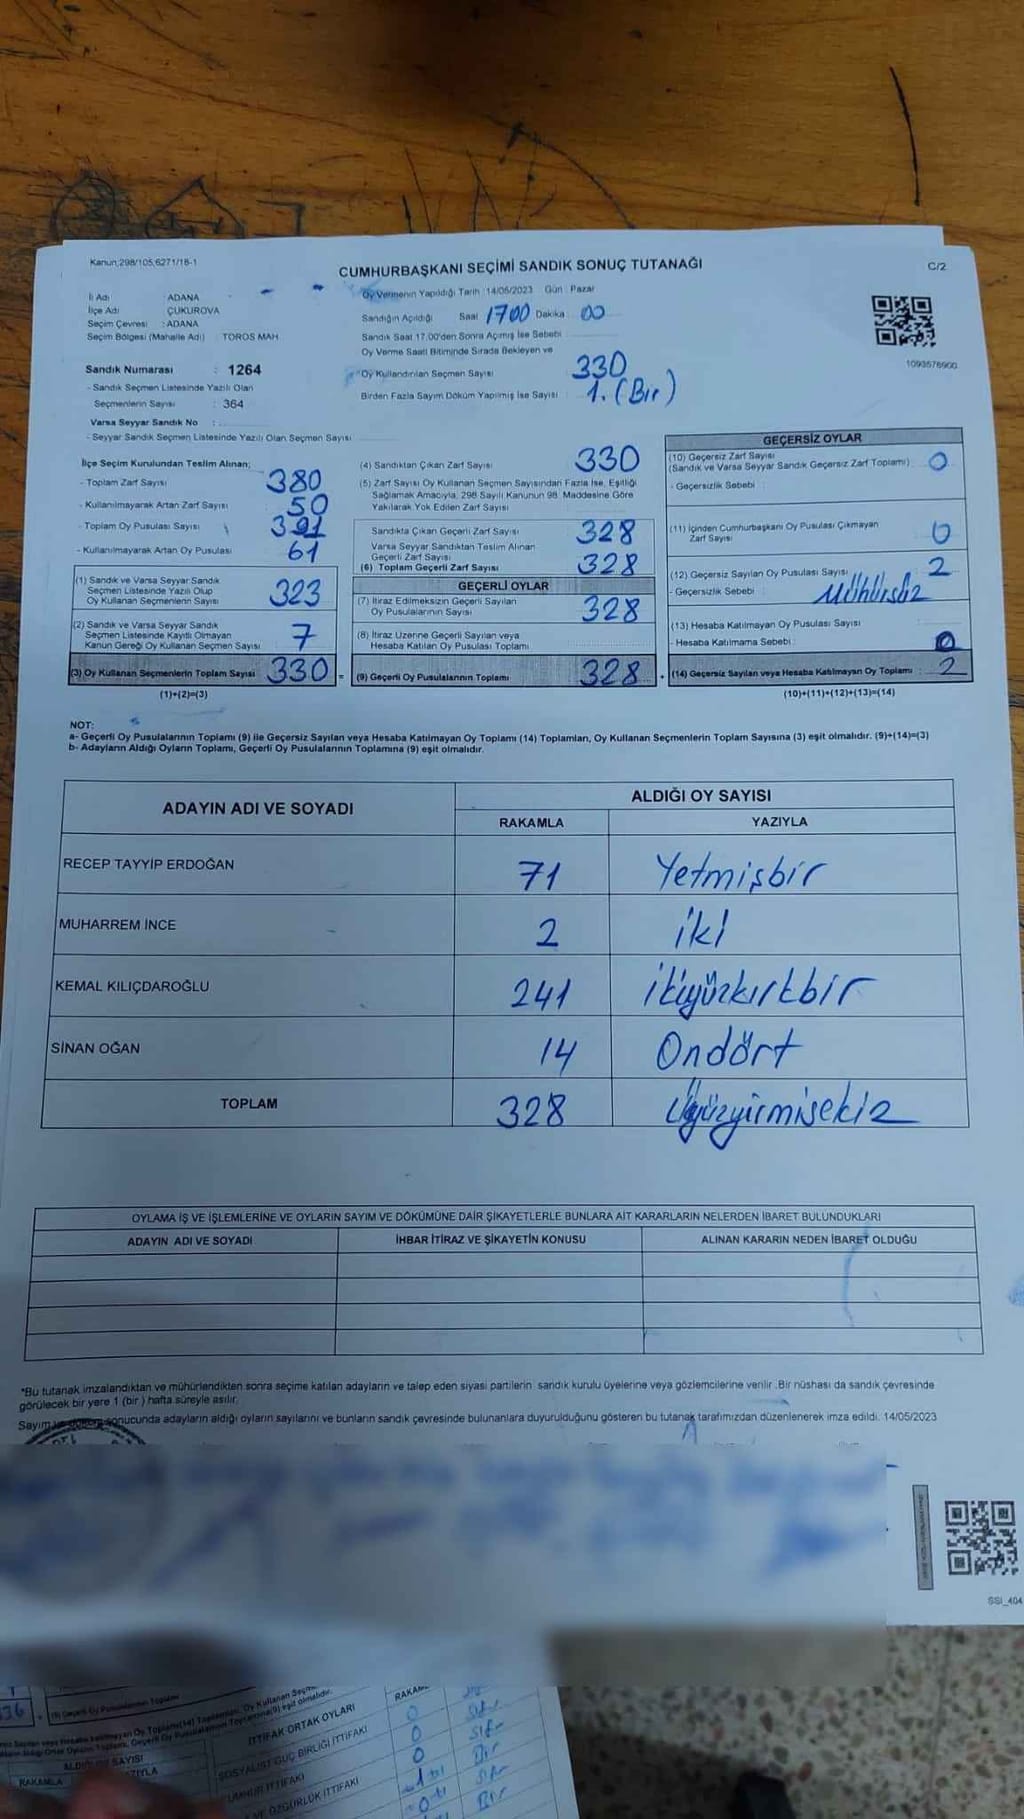 Kanun;298/105,6271/18-1
CUMHURBAŞKANI SEÇİMİ SANDIK SONUÇ TUTANAĞI
C/2
İl Adı : ADANA
İlçe Adı : ÇUKUROVA
Seçim Çevresi : ADANA
Seçim Bölgesi (Mahalle Adı) : TOROS MAH
Sandık Numarası : 1264
- Sandık Seçmen Listesinde Yazılı Olan
Seçmenlerin Sayısı : 364
Varsa Seyyar Sandık No :
- Seyyar Sandık Seçmen Listesinde Yazılı Olan Seçmen Sayısı
Oy Vermenin Yapıldığı Tarih :14/05/2023 Gün : Pazar
Sandığın Açıldığı Saat 1700 Dakika : 00
Sandık Saat 17.00'den Sonra Açılmış İse Sebebi
Oy Verme Saati Bitiminde Sırada Bekleyen ve
Oy Kullandırılan Seçmen Sayısı 330
Birden Fazla Sayım Döküm Yapılmış İse Sayısı 1. (Bir)
1093576900
İlçe Seçim Kurulundan Teslim Alınan;
- Toplam Zarf Sayısı 380
- Kullanılmayarak Artan Zarf Sayısı 50
- Toplam Oy Pusulası Sayısı 391
- Kullanılmayarak Artan Oy Pusulası 61
(1) Sandık ve Varsa Seyyar Sandık
Seçmen Listesinde Yazılı Olup
Oy Kullanan Seçmenlerin Sayısı 323
(2) Sandık ve Varsa Seyyar Sandık
Seçmen Listesinde Kayıtlı Olmayan
Kanun Gereği Oy Kullanan Seçmen Sayısı 7
(3) Oy Kullanan Seçmenlerin Toplam Sayısı 330
(1)+(2)=(3)
(4) Sandıktan Çıkan Zarf Sayısı 330
(5) Zarf Sayısı Oy Kullanan Seçmen Sayısından Fazla İse, Eşitliği
Sağlamak Amacıyla, 298 Sayılı Kanunun 98. Maddesine Göre
Yakılarak Yok Edilen Zarf Sayısı
Sandıkta Çıkan Geçerli Zarf Sayısı 328
Varsa Seyyar Sandıktan Teslim Alınan
Geçerli Zarf Sayısı
(6) Toplam Geçerli Zarf Sayısı 328
GEÇERLİ OYLAR
(7) İtiraz Edilmeksizin Geçerli Sayılan
Oy Pusulalarının Sayısı 328
(8) İtiraz Üzerine Geçerli Sayılan veya
Hesaba Katılan Oy Pusulası Toplamı
= (9) Geçerli Oy Pusulalarının Toplamı 328 +
GEÇERSİZ OYLAR
(10) Geçersiz Zarf Sayısı
(Sandık ve Varsa Seyyar Sandık Geçersiz Zarf Toplamı) : 0
- Geçersizlik Sebebi :
(11) İçinden Cumhurbaşkanı Oy Pusulası Çıkmayan
Zarf Sayısı 0
(12) Geçersiz Sayılan Oy Pusulası Sayısı 2
- Geçersizlik Sebebi : Mühürsüz
(13) Hesaba Katılmayan Oy Pusulası Sayısı
- Hesaba Katılmama Sebebi : 0
(14) Geçersiz Sayılan veya Hesaba Katılmayan Oy Toplamı : 2
(10)+(11)+(12)+(13)=(14)
NOT:
a- Geçerli Oy Pusulalarının Toplamı (9) ile Geçersiz Sayılan veya Hesaba Katılmayan Oy Toplamı (14) Toplamları, Oy Kullanan Seçmenlerin Toplam Sayısına (3) eşit olmalıdır. (9)+(14)=(3)
b- Adayların Aldığı Oyların Toplamı, Geçerli Oy Pusulalarının Toplamına (9) eşit olmalıdır.
ADAYIN ADI VE SOYADI
ALDIĞI OY SAYISI
RAKAMLA YAZIYLA
RECEP TAYYİP ERDOĞAN 71 Yetmişbir
MUHARREM İNCE 2 iki
KEMAL KILIÇDAROĞLU 241 ikiyüzkırkbir
SİNAN OĞAN 14 Ondört
TOPLAM 328 Üçyüzyirmisekiz
OYLAMA İŞ VE İŞLEMLERİNE VE OYLARIN SAYIM VE DÖKÜMÜNE DAİR ŞİKAYETLERLE BUNLARA AİT KARARLARIN NELERDEN İBARET BULUNDUKLARI
ADAYIN ADI VE SOYADI İHBAR İTİRAZ VE ŞİKAYETİN KONUSU ALINAN KARARIN NEDEN İBARET OLDUĞU
*Bu tutanak imzalandıktan ve mühürlendikten sonra seçime katılan adayların ve talep eden siyasi partilerin sandık kurulu üyelerine veya gözlemcilerine verilir .Bir nüshası da sandık çevresinde
görülecek bir yere 1 (bir ) hafta süreyle asılır.
Sayım sonucunda adayların aldığı oyların sayılarını ve bunların sandık çevresinde bulunanlara duyurulduğunu gösteren bu tutanak tarafımızdan düzenlenerek imza edildi. 14/05/2023
SSI_404
(9) Geçerli Oy Pusulalarının Toplamı
ALDIĞI OY SAYISI
RAKAMLA
İTTİFAK ORTAK OYLARI
SOSYALİST GÜÇ BİRLİĞİ İTTİFAKI
0
0
0